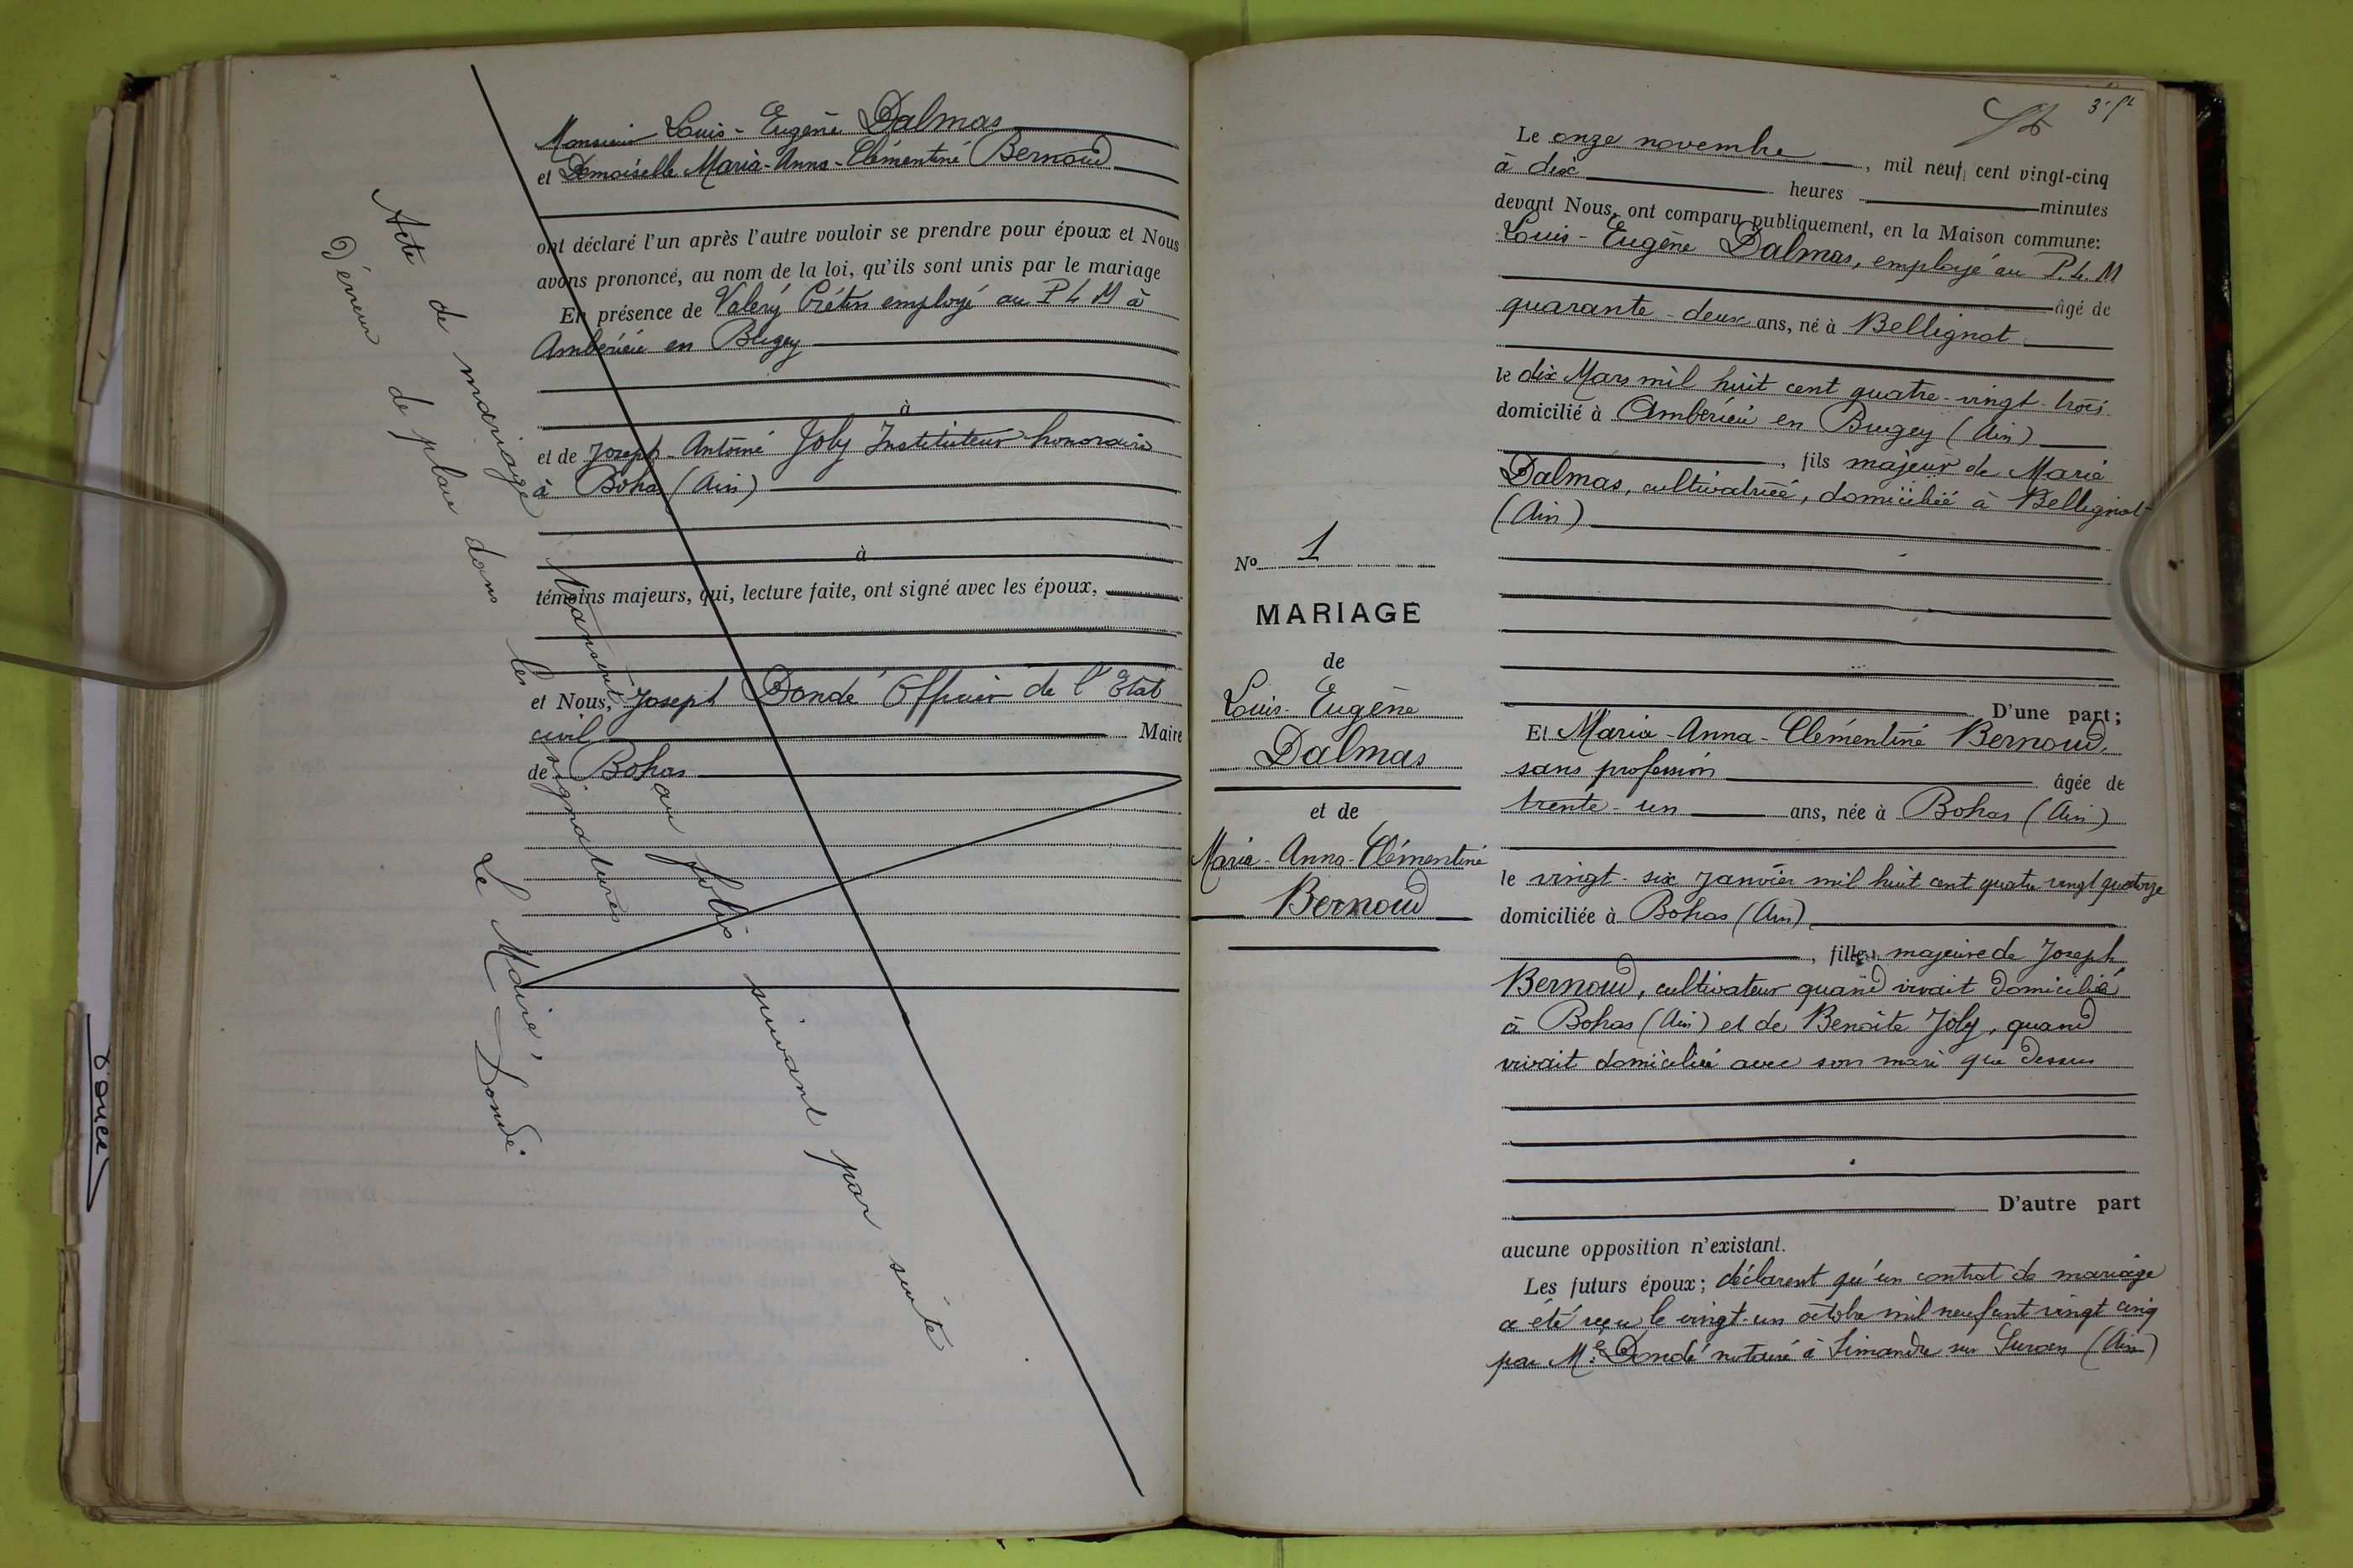 Monsieur Louis-Eugène Dalmas
et Demoiselle Maria-Anna-Clémentine Bernoud
ont déclaré l'un après l'autre vouloir se prendre pour époux et Nous
avons prononcé, au nom de la loi, qu'ils sont unis par le mariage
En présence de Valéry Crétin employé au P L M à
Ambérieu en Bugey
à
et de Joseph-Antoine Joly Instituteur honoraire
à Bohas (Ain)
à
témoins majeurs, qui, lecture faite, ont signé avec les époux,
et Nous, Joseph Dondé Officier de l'Etat
civil Maire
de Bohas
Acte de mariage transcrit au folio suivant par suite
d'erreur de place dans les signatures
Le Maire, Dondé
3e f.t
No 1
MARIAGE
de
Louis-Eugène
Dalmas
et de
Maria-Anna-Clémentine
Bernoud
Le onze novembre, mil neuf cent vingt-cinq
à dix heures minutes
devant Nous, ont comparu publiquement, en la Maison commune:
Louis-Eugène Dalmas, employé au P.L.M
âgé de
quarante-deux ans, né à Bellignat
le dix Mars mil huit cent quatre-vingt-trois
domicilié à Ambérieu en Bugey (Ain)
, fils majeur de Marie
Dalmas, cultivatrice, domiciliée à Bellignat
(Ain)
D'une part;
Et Maria-Anna-Clémentine Bernoud,
sans profession âgée de
trente-un ans, née à Bohas (Ain)
le vingt-six Janvier mil huit cent quatre vingt quatorze
domiciliée à Bohas (Ain)
, fille majeure de Joseph
Bernoud, cultivateur quand vivait domicilié
à Bohas (Ain) et de Benoîte Joly, quand
vivait domiciliée avec son mari que dessus
D'autre part
aucune opposition n'existant.
Les futurs époux; déclarent qu'un contrat de mariage
a été reçu le vingt-un octobre mil neuf cent vingt cinq
par Me Dondé notaire à Simandre sur Suran (Ain)